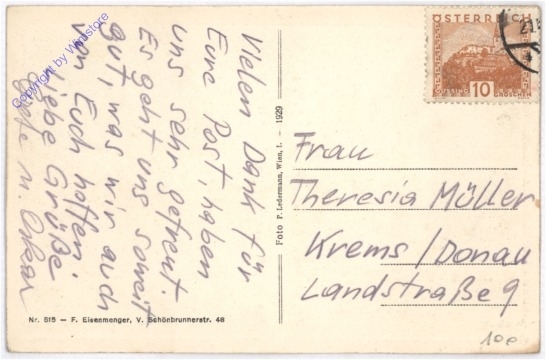 Vielen Dank für
Eure Post, haben
uns sehr gefreut.
Es geht uns soweit
gut, was wir auch
von Euch hoffen.
Liebe Grüße
u. Oskar
Copyright by Winstore
Foto P. Ledermann, Wien, I. - 1929
ÖSTERREICH
GÜSSING 10 GROSCHEN
21
Frau
Theresia Müller
Krems / Donau
Landstraße 9
Nr. 515 — F. Eisenmenger, V. Schönbrunnerstr. 48
100